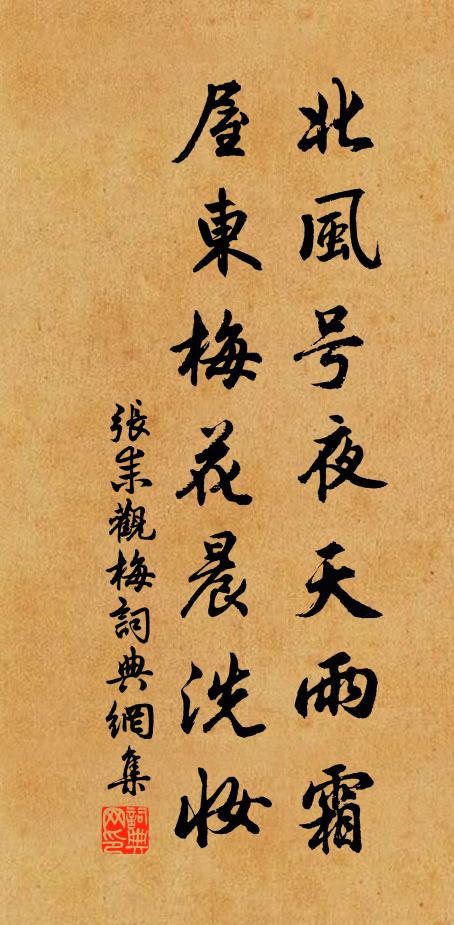 北風号夜天雨霜
屋東梅花晨洗妝
張耒觀梅詞典網集
詞典网印